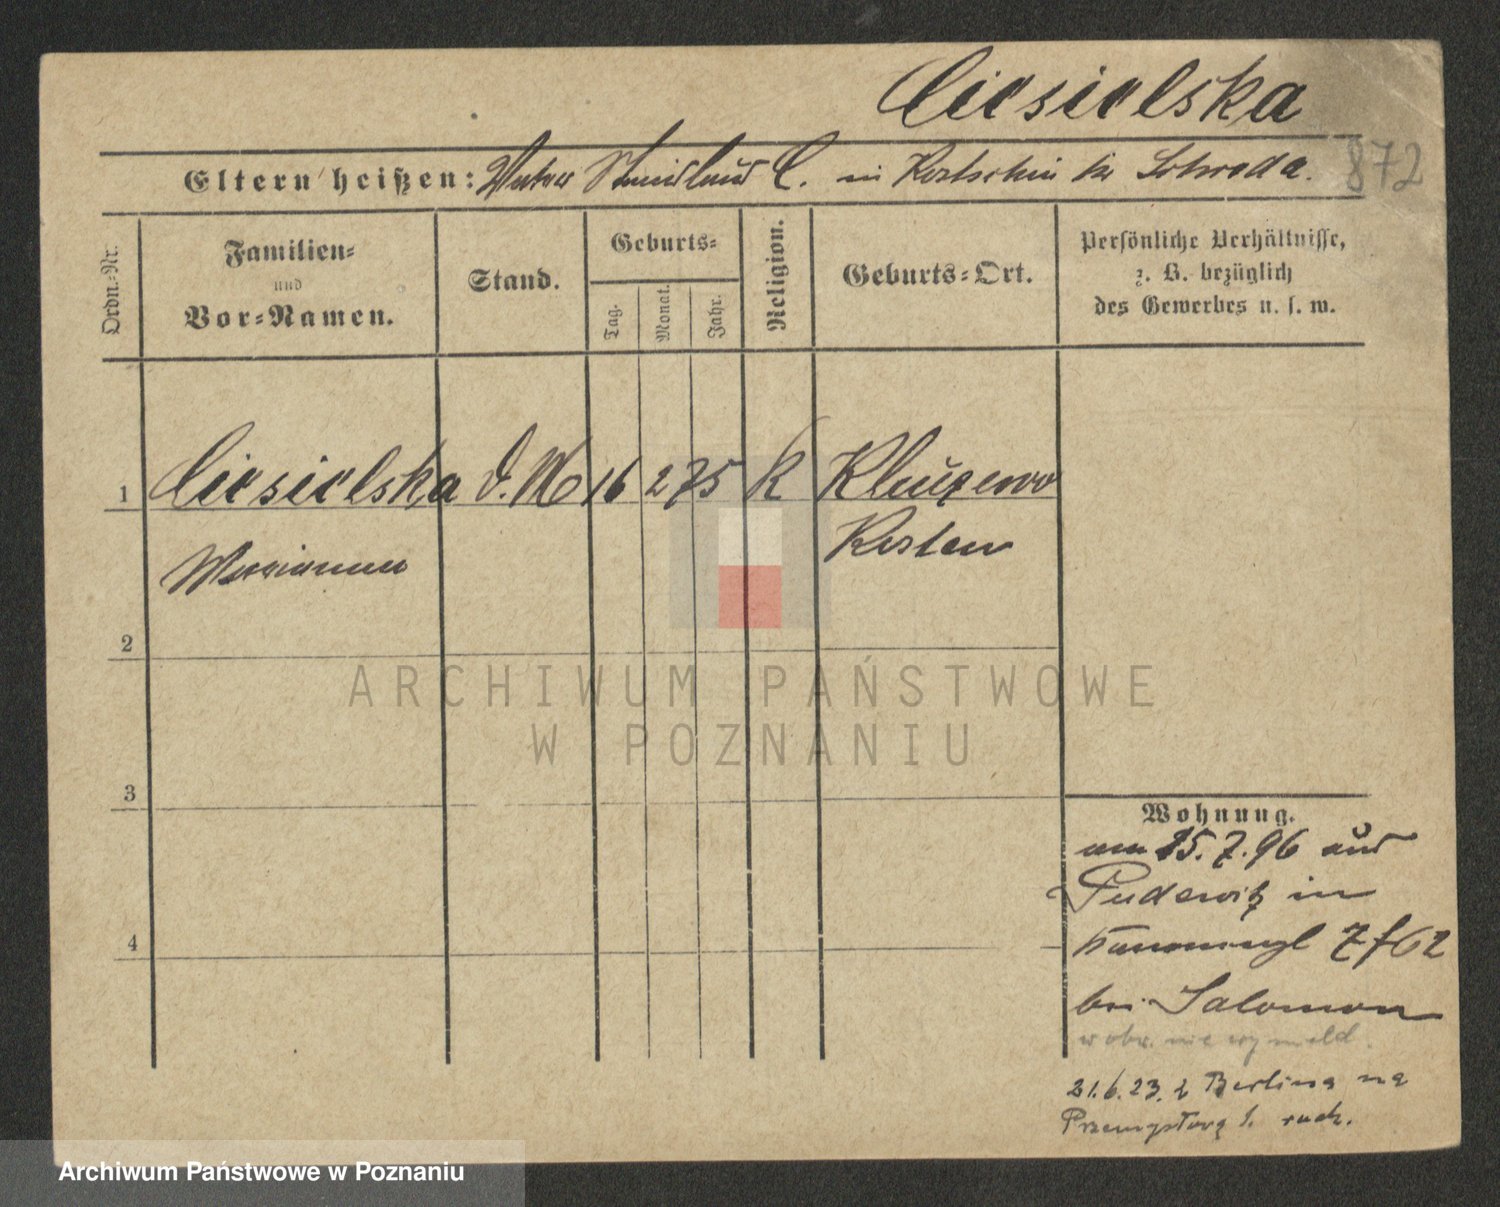 Ciesielska
Eltern heißen: Vater Stanislaus C. in Kostschin Kr Schroda.
872
Ordn.-Nr.
Familien-
und
Vor-Namen.
Stand.
Geburts-
Tag.
Monat.
Jahr.
Religion.
Geburts-Ort.
Persönliche Verhältnisse,
z. B. bezüglich
des Gewerbes u. s. w.
1 Ciesielska d. M 16 2 75 K Kluczewo
Marianna Kosten
2
3
4
Wohnung.
am 15.7.96 aus
Pudewitz in
7 f 62
bei Salomon
w obw. nie wymeld.
21.6.23. z Berlina na
Przemysłową
ARCHIWUM PAŃSTWOWE
W POZNANIU
Archiwum Państwowe w Poznaniu